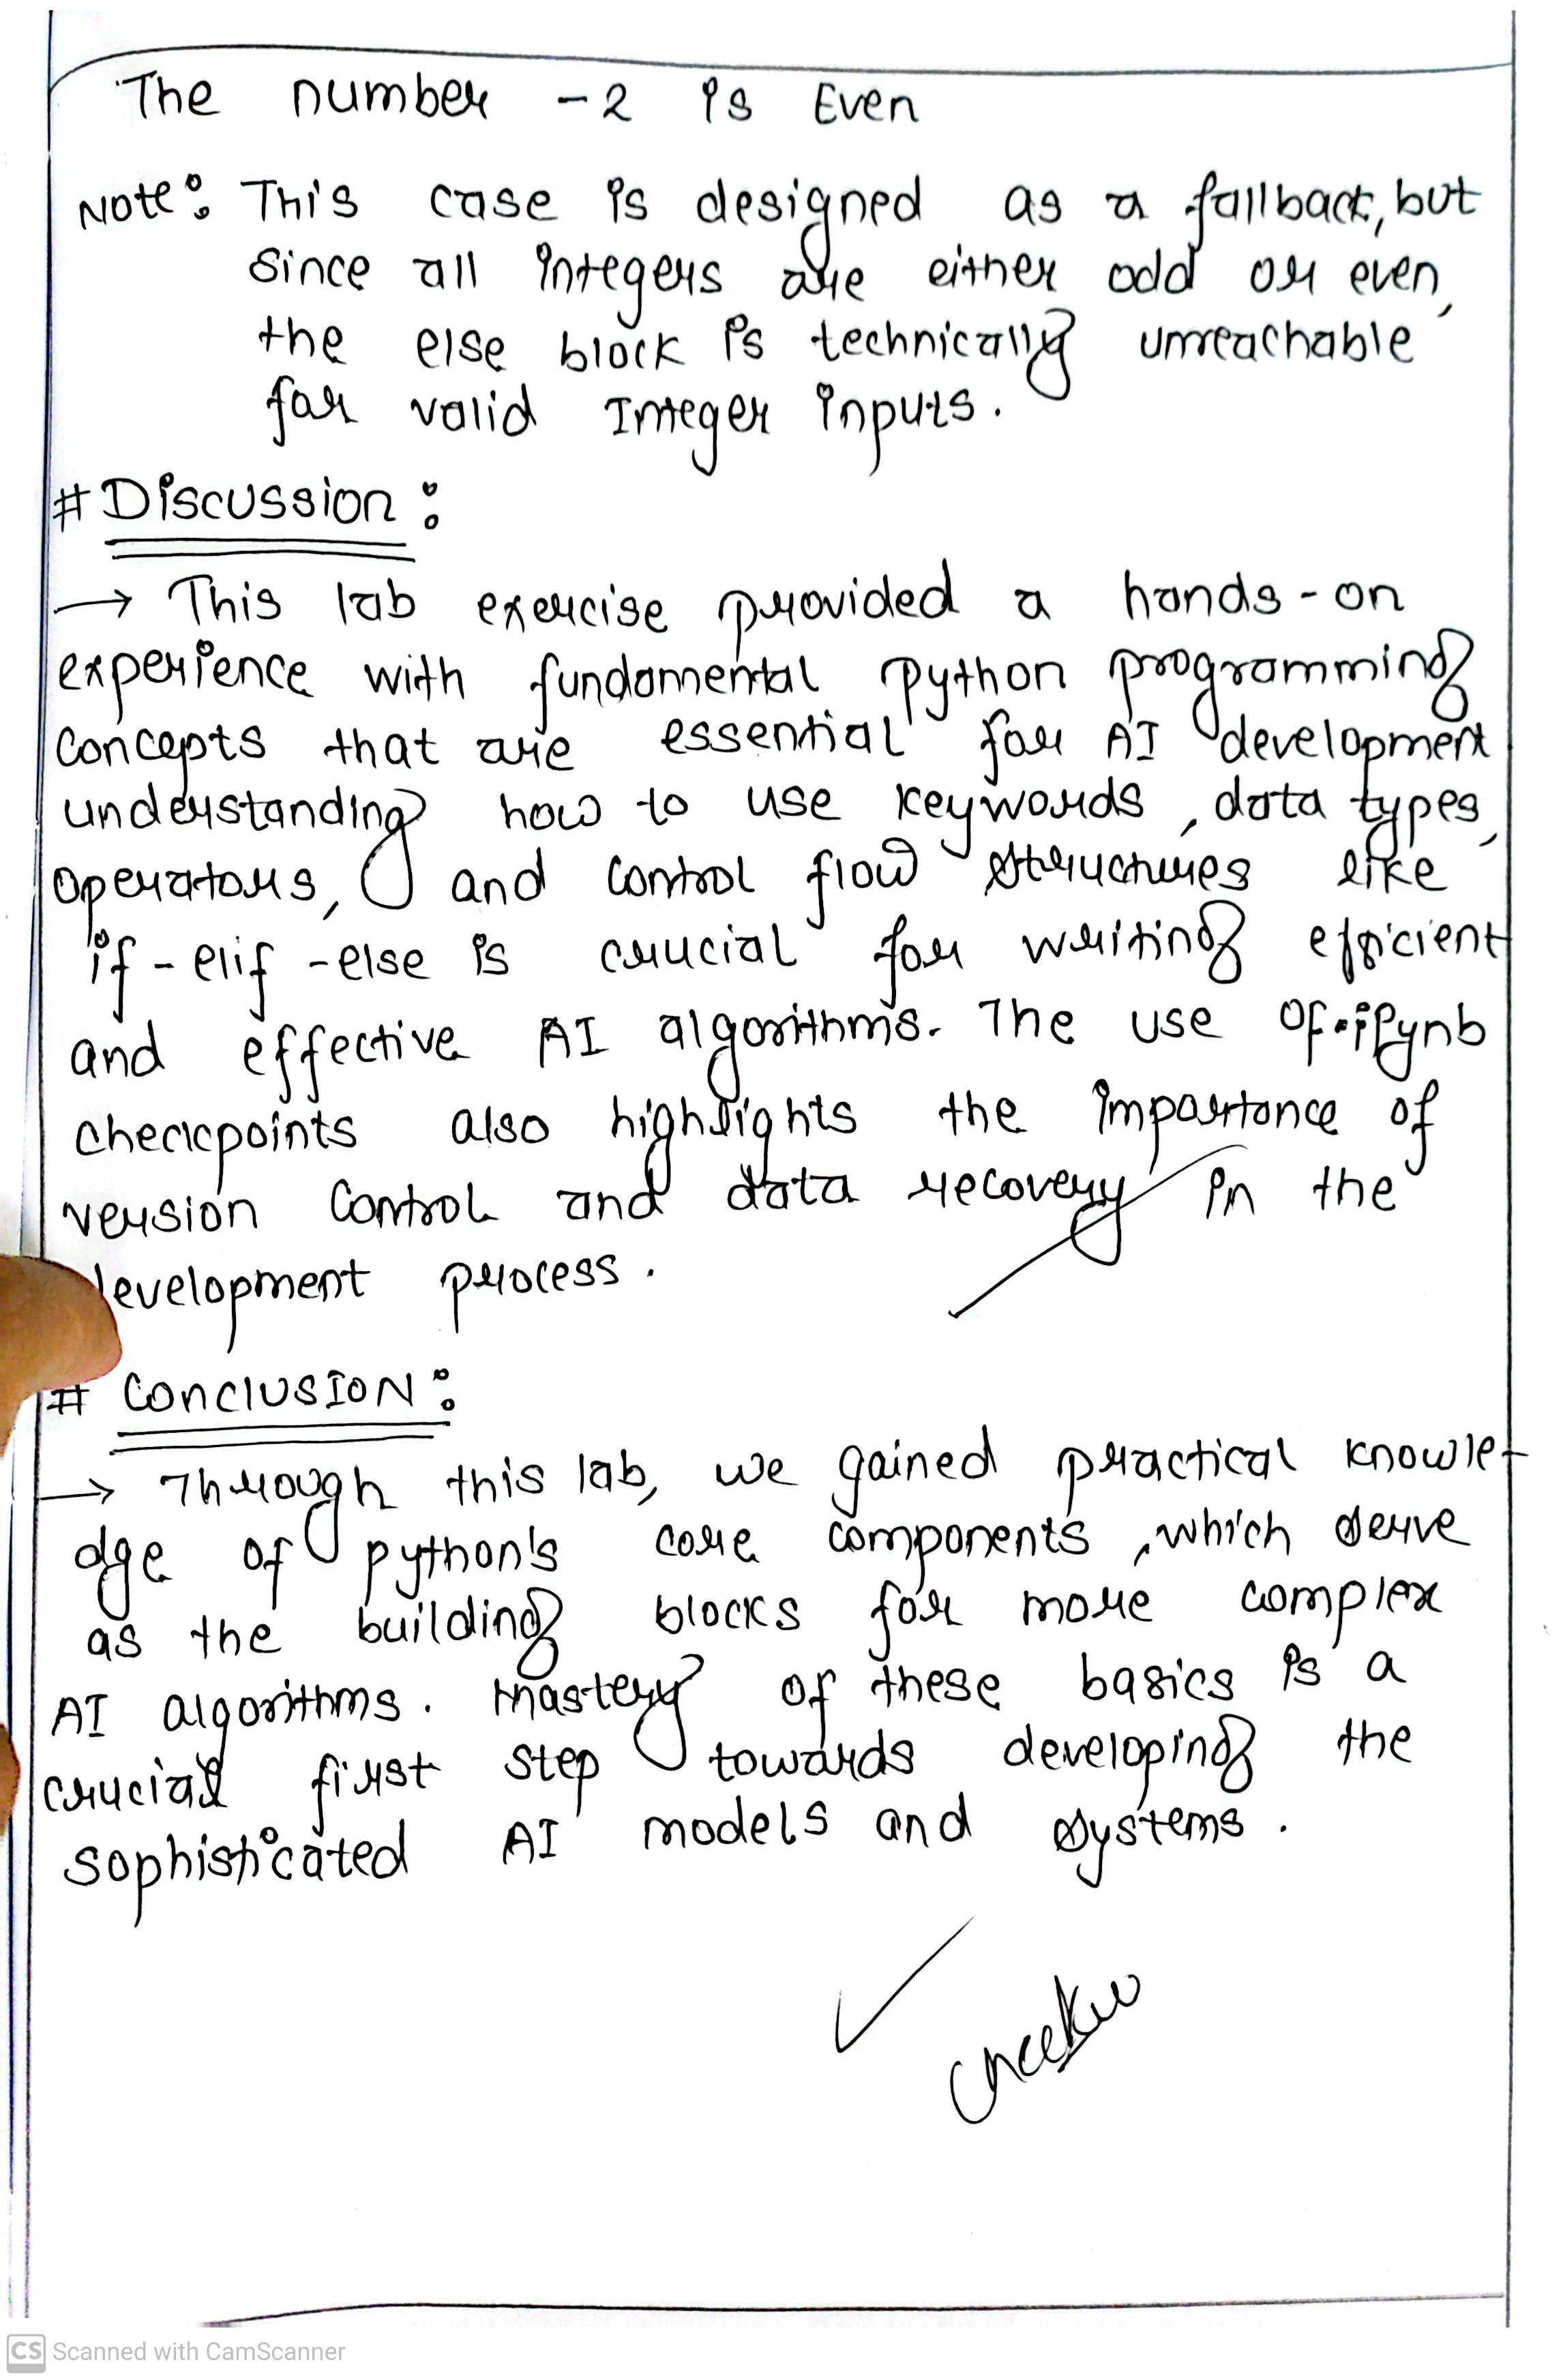 The number -2 is Even
Note: This case is designed as a fallback, but
since all integers are either odd or even,
the else block is technically unreachable
for valid Integer inputs.
# Discussion:
→ This lab exercise provided a hands-on
experience with fundamental python programming
concepts that are essential for AI development
understanding how to use keywords, data types,
operators, and control flow structures like
if-elif-else is crucial for writing efficient
and effective AI algorithms. The use of .ipynb
checkpoints also highlights the importance of
version control and data recovery in the
development process.
# Conclusion:
→ Through this lab, we gained practical knowle-
dge of python's core components, which serve
as the building blocks for more complex
AI algorithms. Mastery of these basics is a
crucial first step towards developing the
sophisticated AI models and systems.
CS Scanned with CamScanner